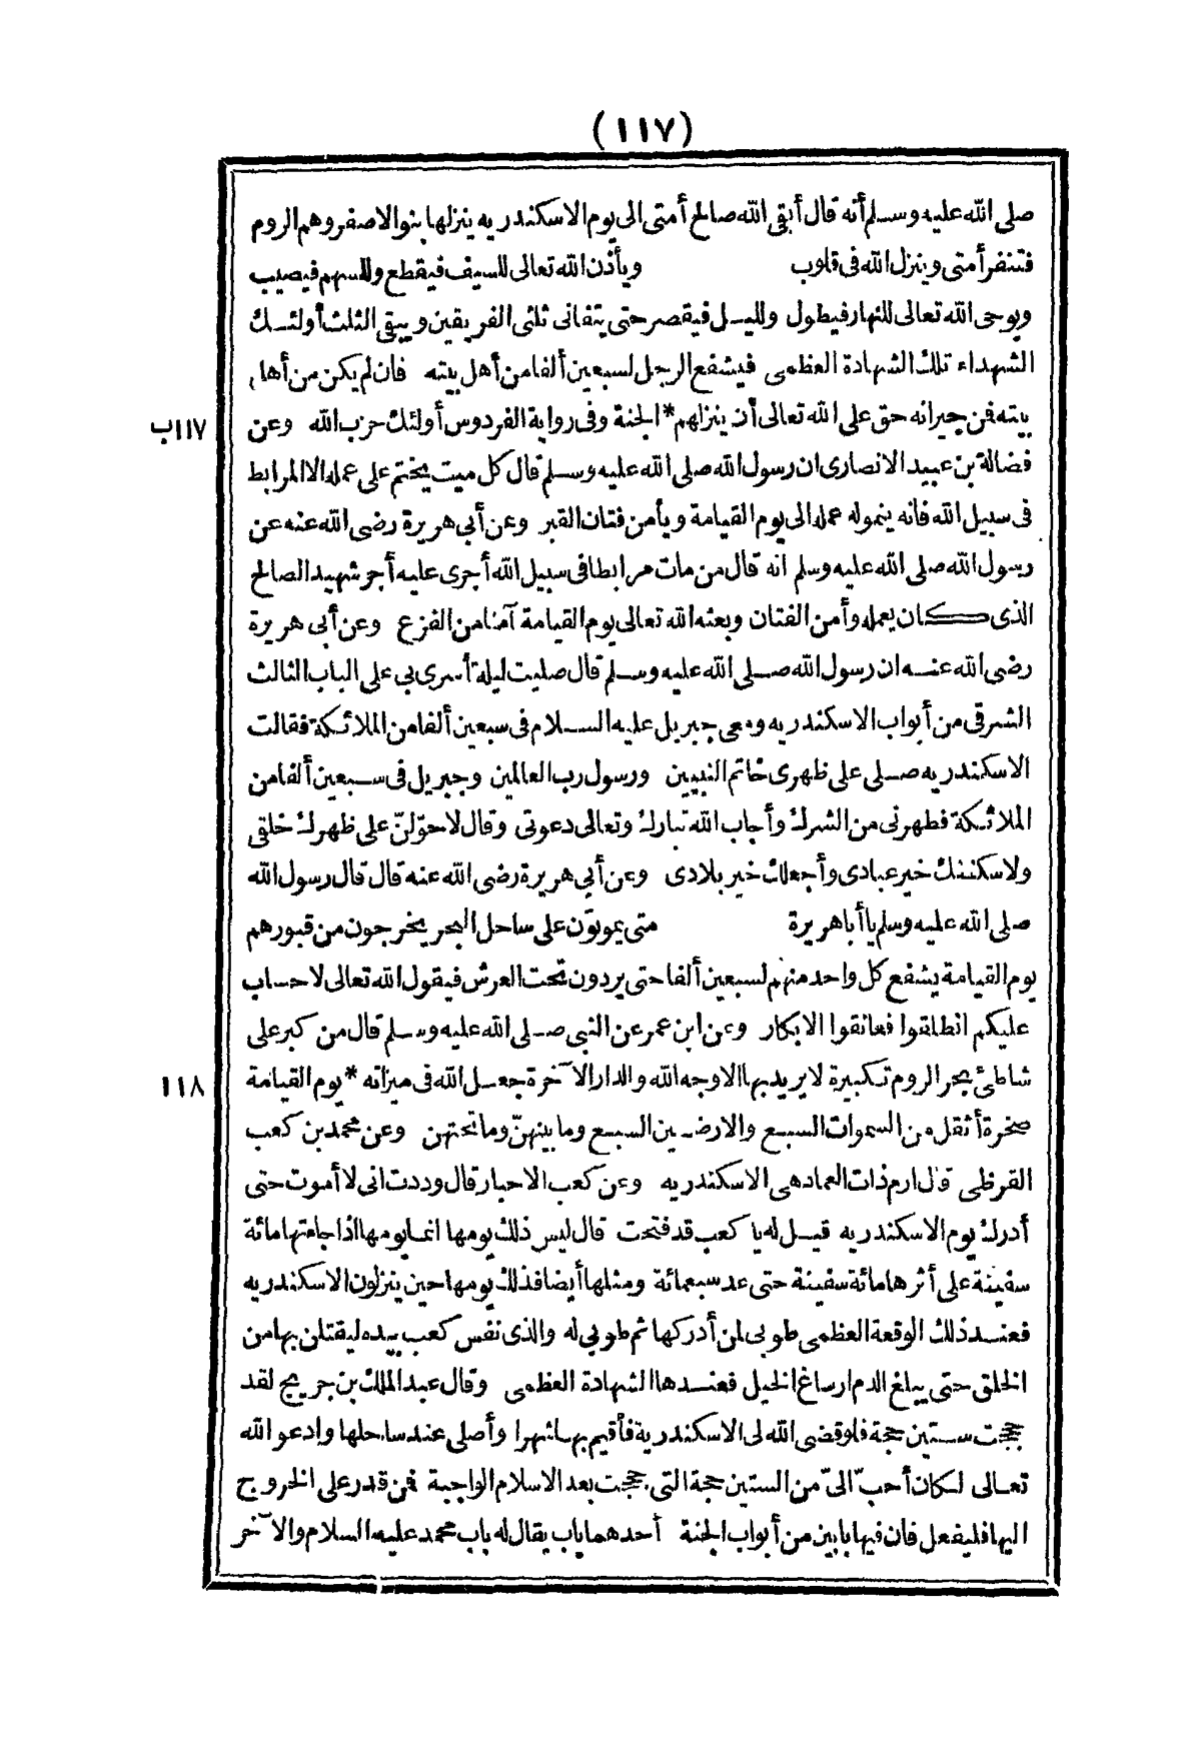 (١١٧)
صلى الله عليه وسلم أنه قال أبقى الله صالح أمتى الى يوم الاسكندريه ينزلها بنو الاصفر وهم الروم
فتنفر أمتى وينزل الله فى قلوب ويأذن الله تعالى للسيف فيقطع وللسهم فيصيب
ويوحى الله تعالى للنهار فيطول ولليل فيقصر حتى يتفانى ثلثى الفريقين ويبقى الثلث أولئك
الشهداء تلك الشهادة العظمى فيشفع الرجل لسبعين ألفا من أهل بيته فان لم يكن من أهل
بيته فمن جيرانه حق على الله تعالى أن ينزلهم* الجنة وفى رواية الفردوس أولئك حزب الله وعن
١١٧ب
فضالة بن عبيد الانصارى ان رسول الله صلى الله عليه وسلم قال كل ميت يختم على عمله الا المرابط
فى سبيل الله فانه ينمو له عمله الى يوم القيامة ويأمن فتان القبر وعن أبى هريرة رضى الله عنه عن
رسول الله صلى الله عليه وسلم انه قال من مات مرابطا فى سبيل الله أجرى عليه أجر شهيد الصالح
الذى كان يعمله وأمن الفتان وبعثه الله تعالى يوم القيامة آمنا من الفزع وعن أبى هريرة
رضى الله عنه ان رسول الله صلى الله عليه وسلم قال صليت ليلة أسرى بى على الباب الثالث
الشرقى من أبواب الاسكندريه ومعى جبريل عليه السلام فى سبعين ألفا من الملائكة فقالت
الاسكندريه صلى على ظهرى خاتم النبيين ورسول رب العالمين وجبريل فى سبعين ألفا من
الملائكة فطهرنى من الشرك وأجاب الله تبارك وتعالى دعوتى وقال لاحوّلنّ على ظهرك خلقى
ولاسكننك خير عبادى وأجعلك خير بلادى وعن أبى هريرة رضى الله عنه قال قال رسول الله
صلى الله عليه وسلم يا أبا هريرة متى يموتون على ساحل البحر يخرجون من قبورهم
يوم القيامة يشفع كل واحد منهم لسبعين ألفا حتى يردون تحت العرش فيقول الله تعالى لا حساب
عليكم انطلقوا فعانقوا الابكار وعن ابن عمر عن النبى صلى الله عليه وسلم قال من كبر على
شاطئ بحر الروم تكبيرة لا يريد بها الا وجه الله والدار الآخرة جعل الله فى ميزانه* يوم القيامة
١١٨
صخرة أثقل من السموات السبع والارضين السبع وما بينهنّ وما تحتهن وعن محمد بن كعب
القرظى قال ارم ذات العماد هى الاسكندريه وعن كعب الاحبار قال وددت انى لا أموت حتى
أدرك يوم الاسكندريه قيل له يا كعب قد فتحت قال ليس ذلك يومها انما يومها اذا جاءتها مائة
سفينة على أثرها مائة سفينة حتى عد سبعمائة ومثلها أيضا فذلك يومها حين ينزلون الاسكندريه
فعند ذلك الوقعة العظمى طوبى لمن أدركها ثم طوبى له والذى نفس كعب بيده ليقتلن بها من
الخلق حتى يبلغ الدم ارساغ الخيل فعندها الشهادة العظمى وقال عبد الملك بن جريج لقد
حججت ستين حجة فلو قضى الله لى الاسكندرية فأقيم بها شهرا وأصلى عند ساحلها وادعو الله
تعالى لكان أحبّ الىّ من الستين حجة التى حججت بعد الاسلام الواجبة فمن قدر على الخروج
اليها فليفعل فان فيها بابين من أبواب الجنة أحدهما باب يقال له باب محمد عليه السلام والآخر